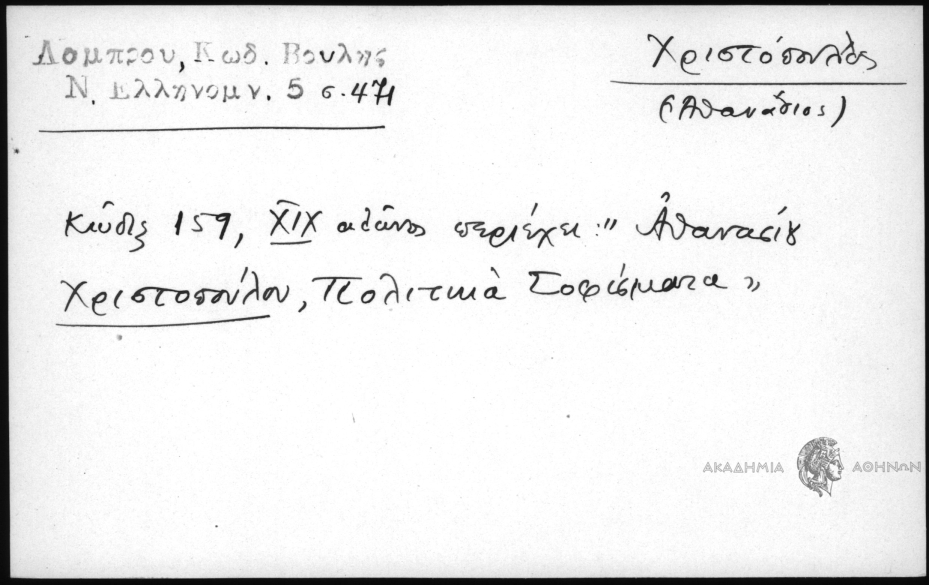 Λαμπρου, Κωδ. Βουλης
Ν. Ελληνομν. 5 σ. 471
Χριστόπουλος
(Ἀθανάσιος)
Κώδιξ 159, XIX αἰῶνος περιέχει: " Ἀθανασίου
Χριστοπούλου, Πολιτικὰ Σοφίσματα "
ΑΚΑΔΗΜΙΑ ΑΘΗΝΩΝ